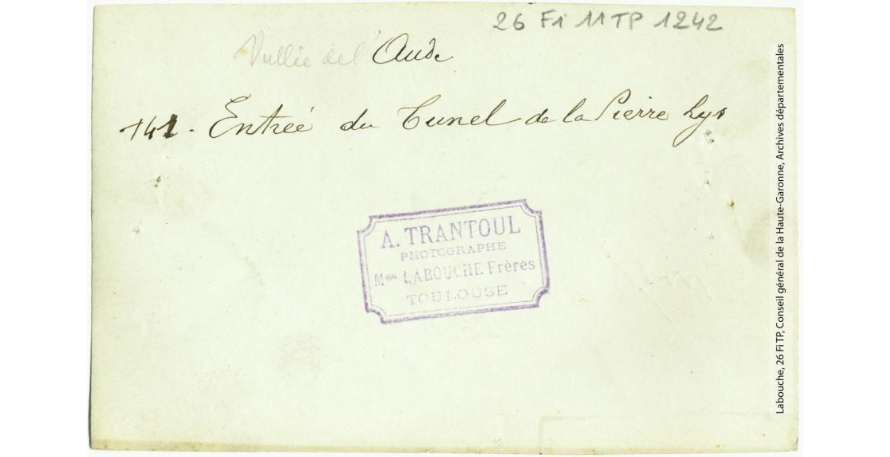 26 Fi 11 TP 1242
Vallée de l'Aude
141 - Entrée du Tunel de la Pierre Lys
A. TRANTOUL
PHOTOGRAPHE
Mon LABOUCHE Frères
TOULOUSE
Labouche, 26 Fi TP, Conseil général de la Haute-Garonne, Archives départementales